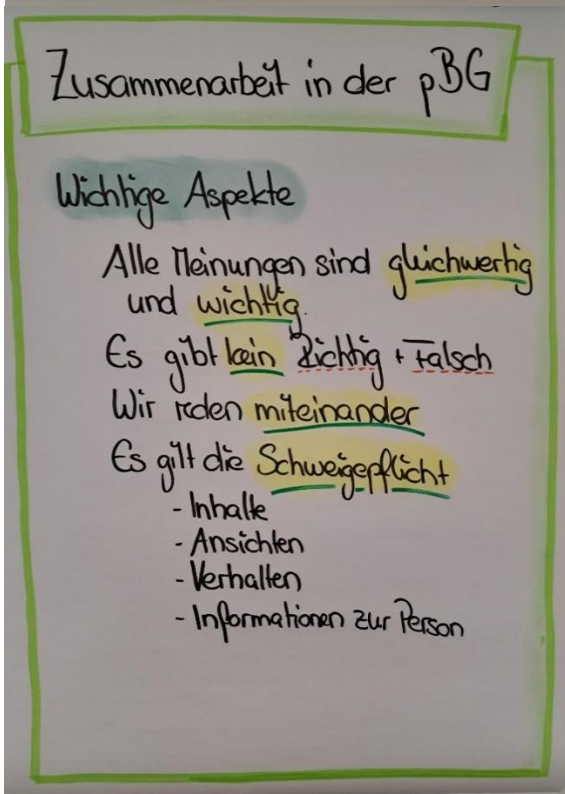 Zusammenarbeit in der pBG
Wichtige Aspekte
Alle Meinungen sind gleichwertig
und wichtig.
Es gibt kein Richtig + Falsch
Wir reden miteinander
Es gilt die Schweigepflicht
- Inhalte
- Ansichten
- Verhalten
- Informationen zur Person